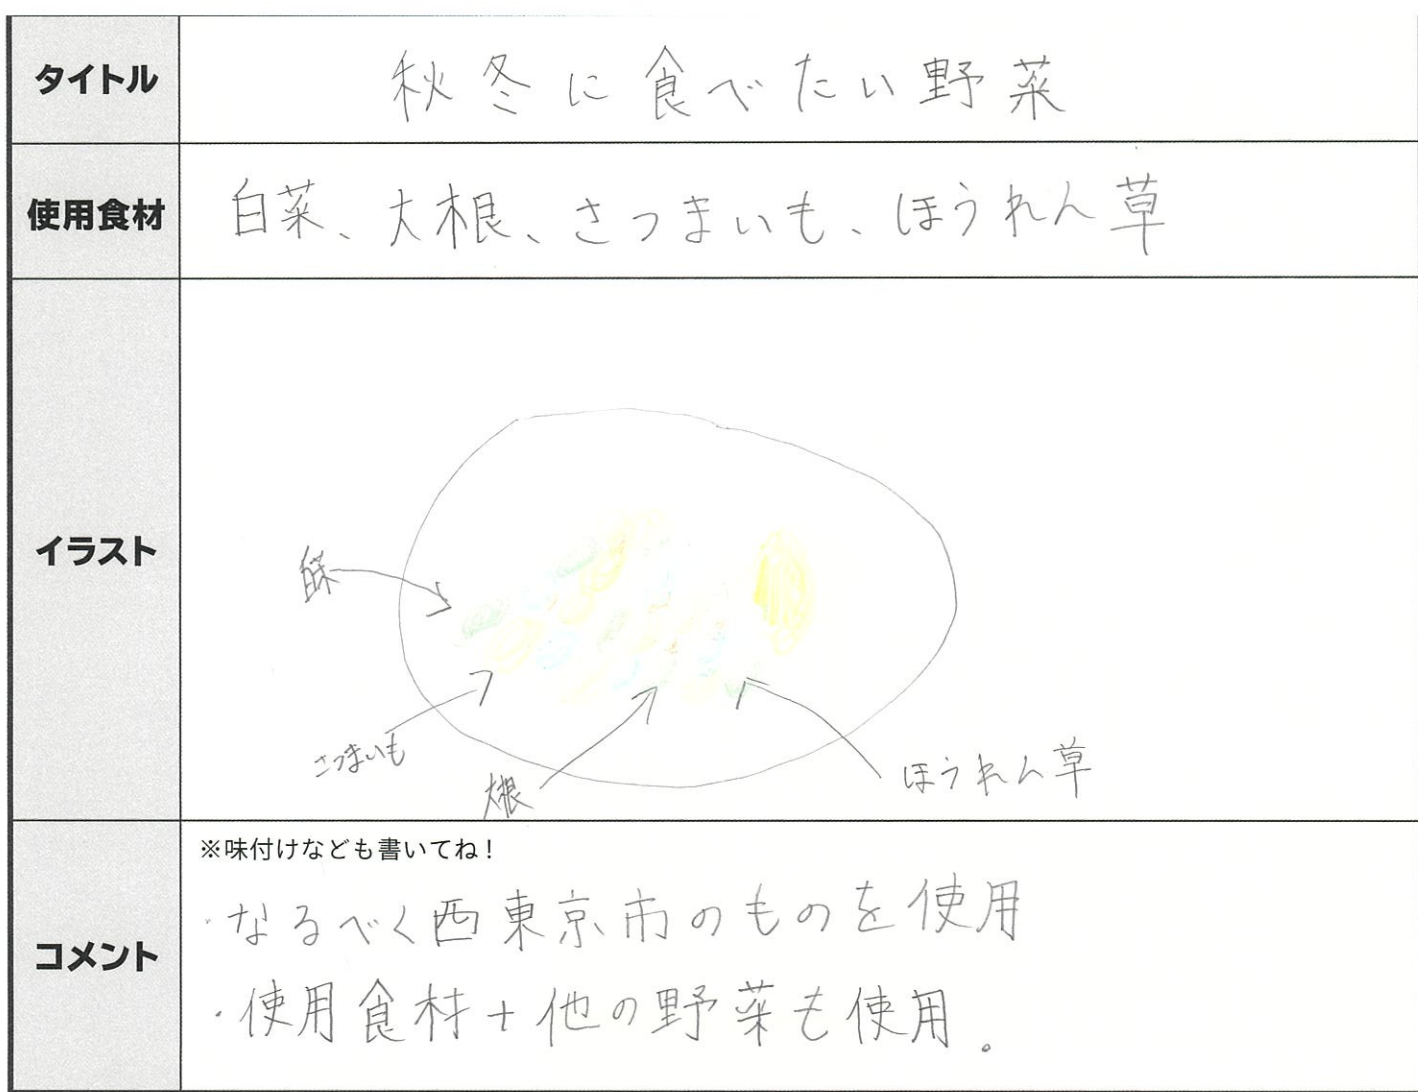 タイトル
秋冬に食べたい野菜
使用食材
白菜、大根、さつまいも、ほうれん草
イラスト
白菜
さつまいも
大根
ほうれん草
コメント
※味付けなども書いてね!
・なるべく西東京市のものを使用
・使用食材+他の野菜も使用。